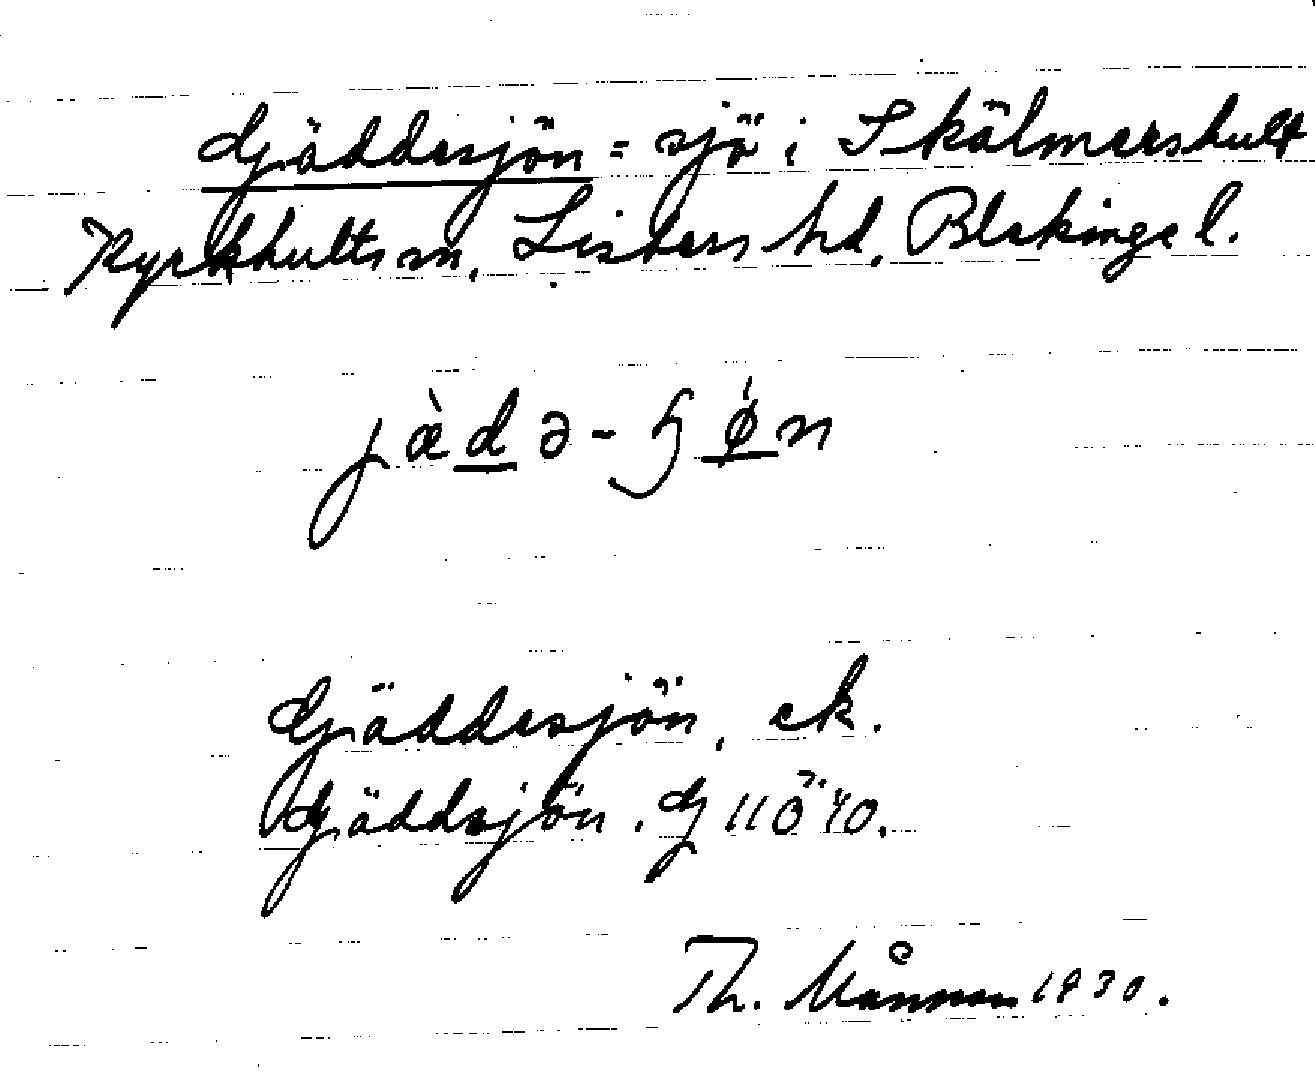 Gäddesjön = sjö i Skälmershult
Kyrkhults sn, Listers hd, Blekinge l.
jàdə-ɧǿn
Gäddesjön, ek.
Gäddsjön. G 11 ö 40.
Th. Månsson 1930.